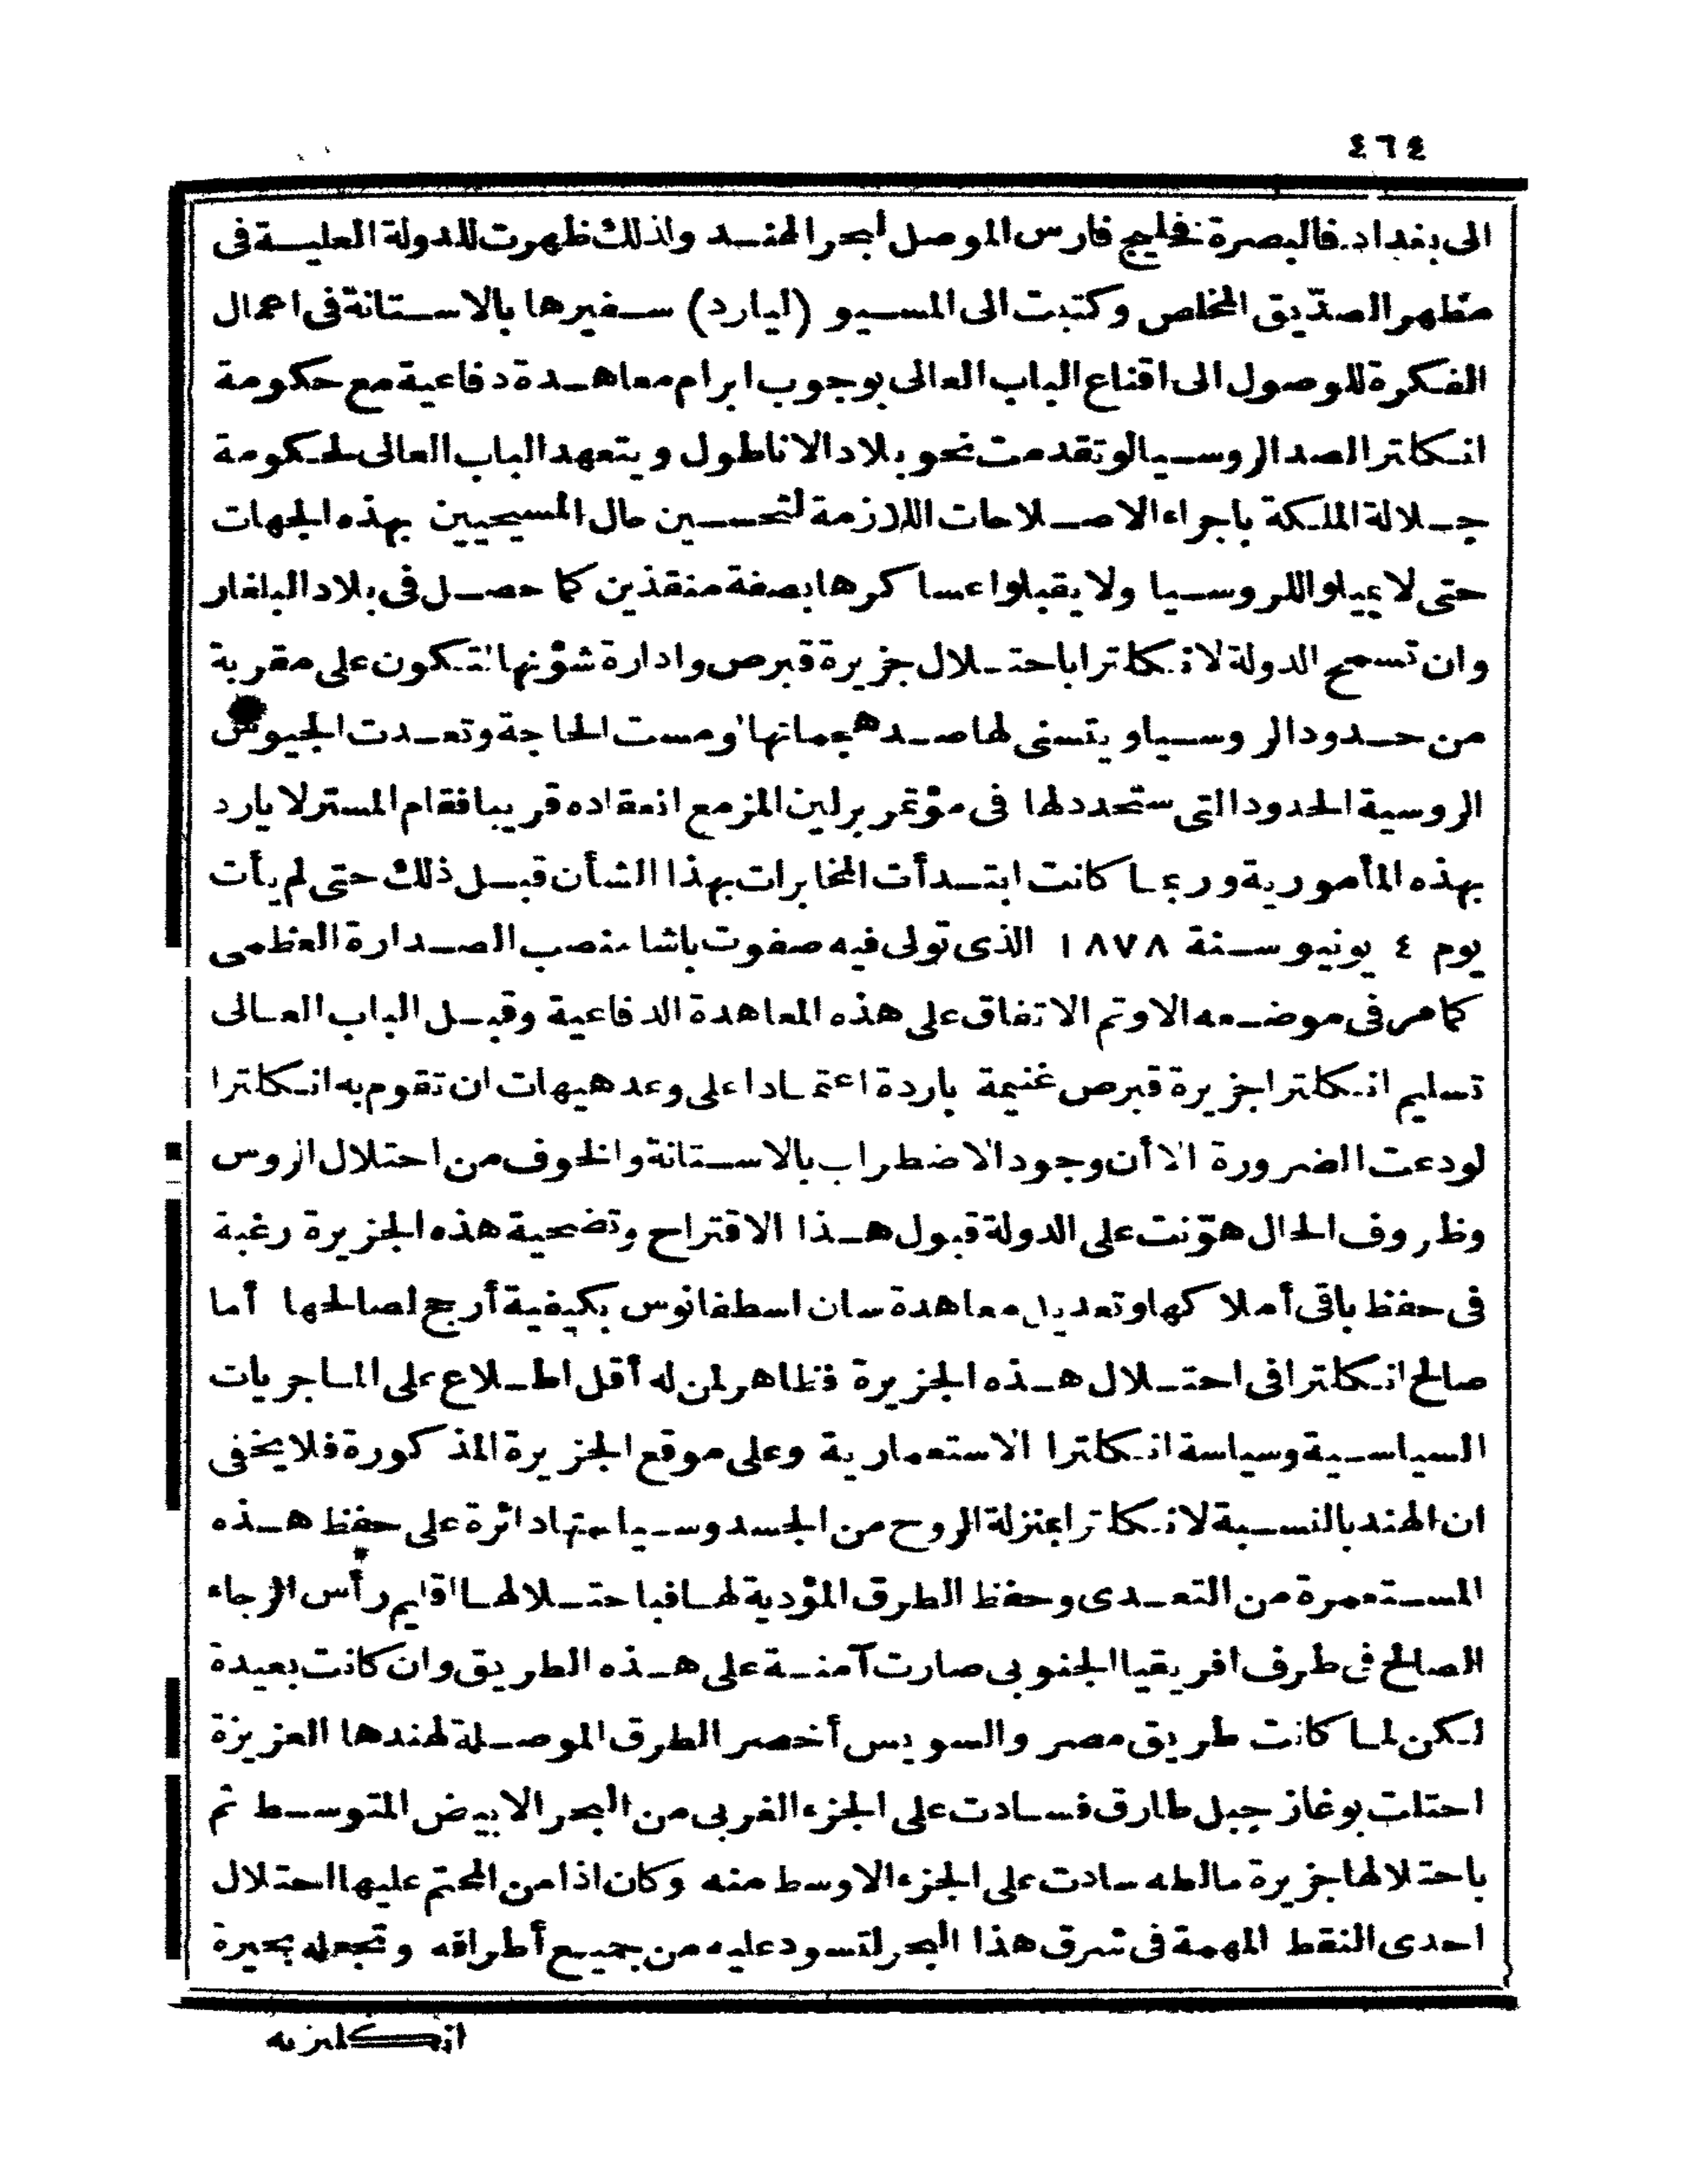 ٤٦٤
الى بغداد فالبصرة فخليج فارس الموصل لبحر الهند ولذلك ظهرت للدولة العلية فى
مظهر الصدّيق المخلص وكتبت الى المسيو (ليارد) سفيرها بالاستانة فى اعمال
الفكرة للوصول الى اقناع الباب العالى بوجوب ابرام معاهدة دفاعية مع حكومة
انكلترا لصد الروسيا لو تقدمت نحو بلاد الاناطول ويتعهد الباب العالى لحكومة
جلالة الملكة باجراء الاصلاحات اللازمة لتحسين حال المسيحيين بهذه الجهات
حتى لا يميلوا للروسيا ولا يقبلوا عساكرها بصفة منقذين كما حصل فى بلاد البلغار
وان تسمح الدولة لانكلترا باحتلال جزيرة قبرص وادارة شؤنها لتكون على مقربة
من حدود الروسيا ويتسنى لها صد هجماتها لو مست الحاجة وتعدت الجيوش
الروسية الحدود التى ستحدد لها فى مؤتمر برلين المزمع انعقاده قريبا فقام المستر لايارد
بهذه المأمورية وربما كانت ابتدأت المخابرات بهذا الشأن قبل ذلك حتى لم يأت
يوم ٤ يونيو سنة ١٨٧٨ الذى تولى فيه صفوت باشا منصب الصدارة العظمى
كما مر فى موضعه الا وتم الاتفاق على هذه المعاهدة الدفاعية وقبل الباب العالى
تسليم انكلترا جزيرة قبرص غنيمة باردة اعتمادا على وعد هيهات ان تقوم به انكلترا
لو دعت الضرورة الا أن وجود الاضطراب بالاستانة والخوف من احتلال الروس
وظروف الحال هوّنت على الدولة قبول هذا الاقتراح وتضحية هذه الجزيرة رغبة
فى حفظ باقى أملاكها وتعديل معاهدة سان اسطفانوس بكيفية أرجح لصالحها أما
صالح انكلترا فى احتلال هذه الجزيرة فظاهر لمن له أقل اطلاع على الماجريات
السياسية وسياسة انكلترا الاستعمارية وعلى موقع الجزيرة المذكورة فلا يخفى
ان الهند بالنسبة لانكلترا بمنزلة الروح من الجسد وسياستها دائرة على حفظ هذه
المستعمرة من التعدى وحفظ الطرق المؤدية لها فباحتلالها اقليم رأس الرجاء
الصالح فى طرف افريقيا الجنوبى صارت آمنة على هذه الطريق وان كانت بعيدة
لكن لما كانت طريق مصر والسويس أخصر الطرق الموصلة لهندها العزيزة
احتلت بوغاز جبل طارق فسادت على الجزء الغربى من البحر الابيض المتوسط ثم
باحتلالها جزيرة مالطه سادت على الجزء الاوسط منه وكان اذا من المحتم عليها احتلال
احدى النقط المهمة فى شرق هذا البحر لتسود عليه من جميع أطرافه وتجعله بحيرة
انكليزيه